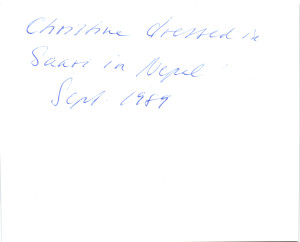 Christine dressed in
Saari in Nepal
Sept. 1989